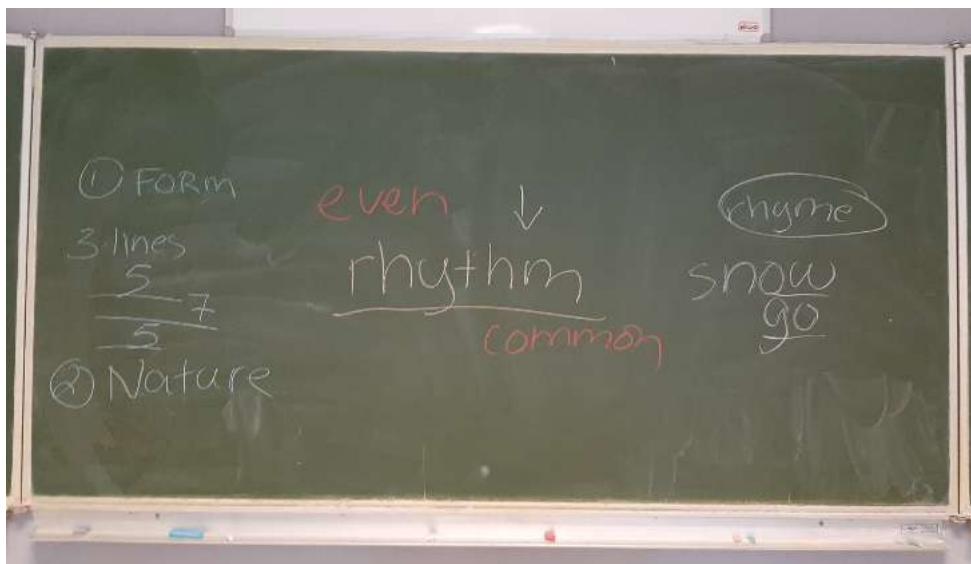 ① FORM
3 lines
5
7
5
② Nature
even ↓
rhythm
common
rhyme
snow
go